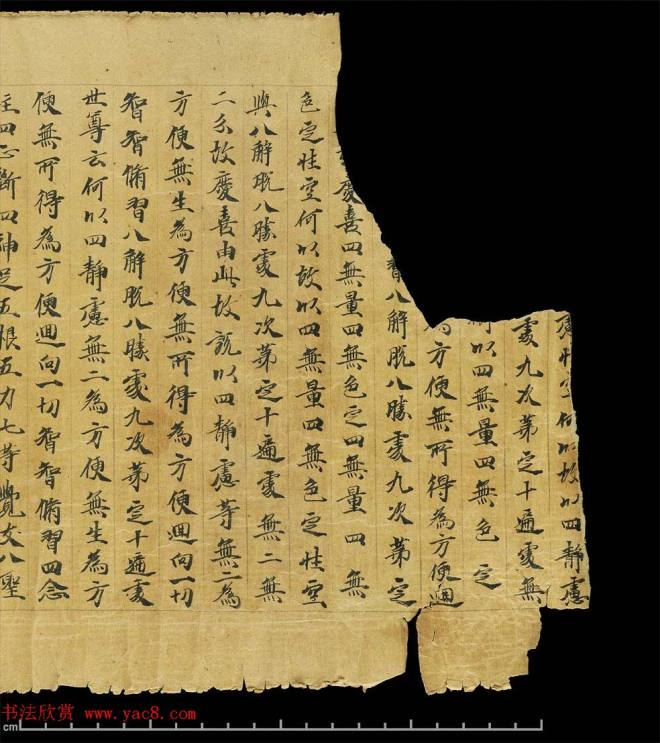 慮性空何以故以四靜慮
處九次第定十遍處無
以四無量四無色定
為方便無所得為方便迴
習八解脫八勝處九次第定
慶喜四無量四無色定四無量四無
色定性空何以故以四無量四無色定性空
與八解脫八勝處九次第定十遍處無二無
二分故慶喜由此故說以四靜慮等無二為
方便無生為方便無所得為方便迴向一切
智智脩習八解脫八勝處九次第定十遍處
世尊云何以四靜慮無二為方便無生為方
便無所得為方便迴向一切智智脩習四念
住四正斷四神足五根五力七等覺支八聖
书法欣赏 www.yac8.com
cm